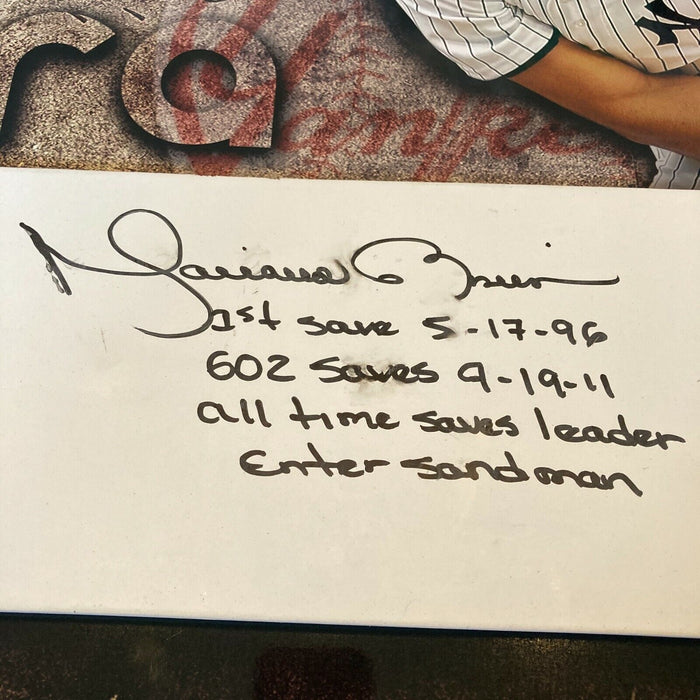 ra
Yankee
Mariano Rivera
1st save 5-17-96
602 saves 9-19-11
all time saves leader
Enter sandman